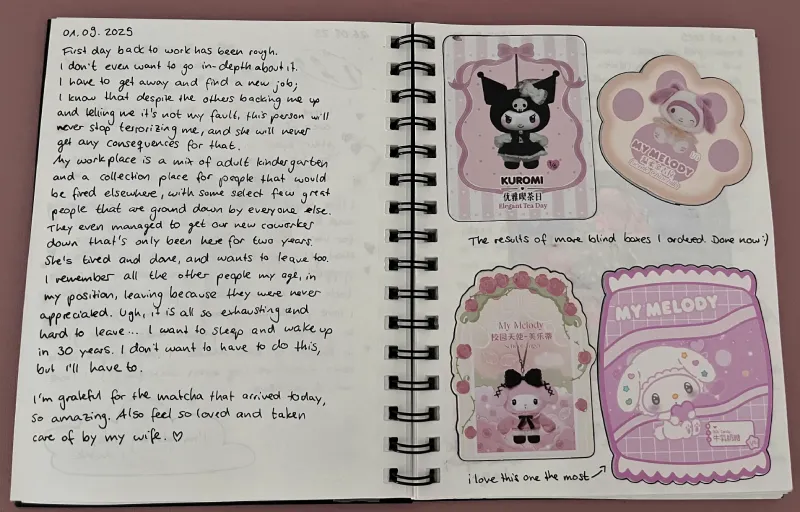 01.09.2025
First day back to work has been rough.
I don't even want to go in-depth about it.
I have to get away and find a new job;
I know that despite the others backing me up
and telling me it's not my fault, this person will
never stop terrorizing me, and she will never
get any consequences for that.
My workplace is a mix of adult kindergarten
and a collection place for people that would
be fired elsewhere, with some select few great
people that are ground down by everyone else.
They even managed to get our new coworker
down that's only been here for two years.
She's tired and done, and wants to leave too.
I remember all the other people my age, in
my position, leaving because they were never
appreciated. Ugh, it is all so exhausting and
hard to leave... I want to sleep and wake up
in 30 years. I don't want to have to do this,
but I'll have to.
I'm grateful for the matcha that arrived today,
so amazing. Also feel so loved and taken
care of by my wife. ♡
KUROMI
优雅喫茶日
Elegant Tea Day
MY MELODY
The results of more blind boxes I ordered. Done now :)
My Melody
校园天使-美乐蒂
MY MELODY
i love this one the most